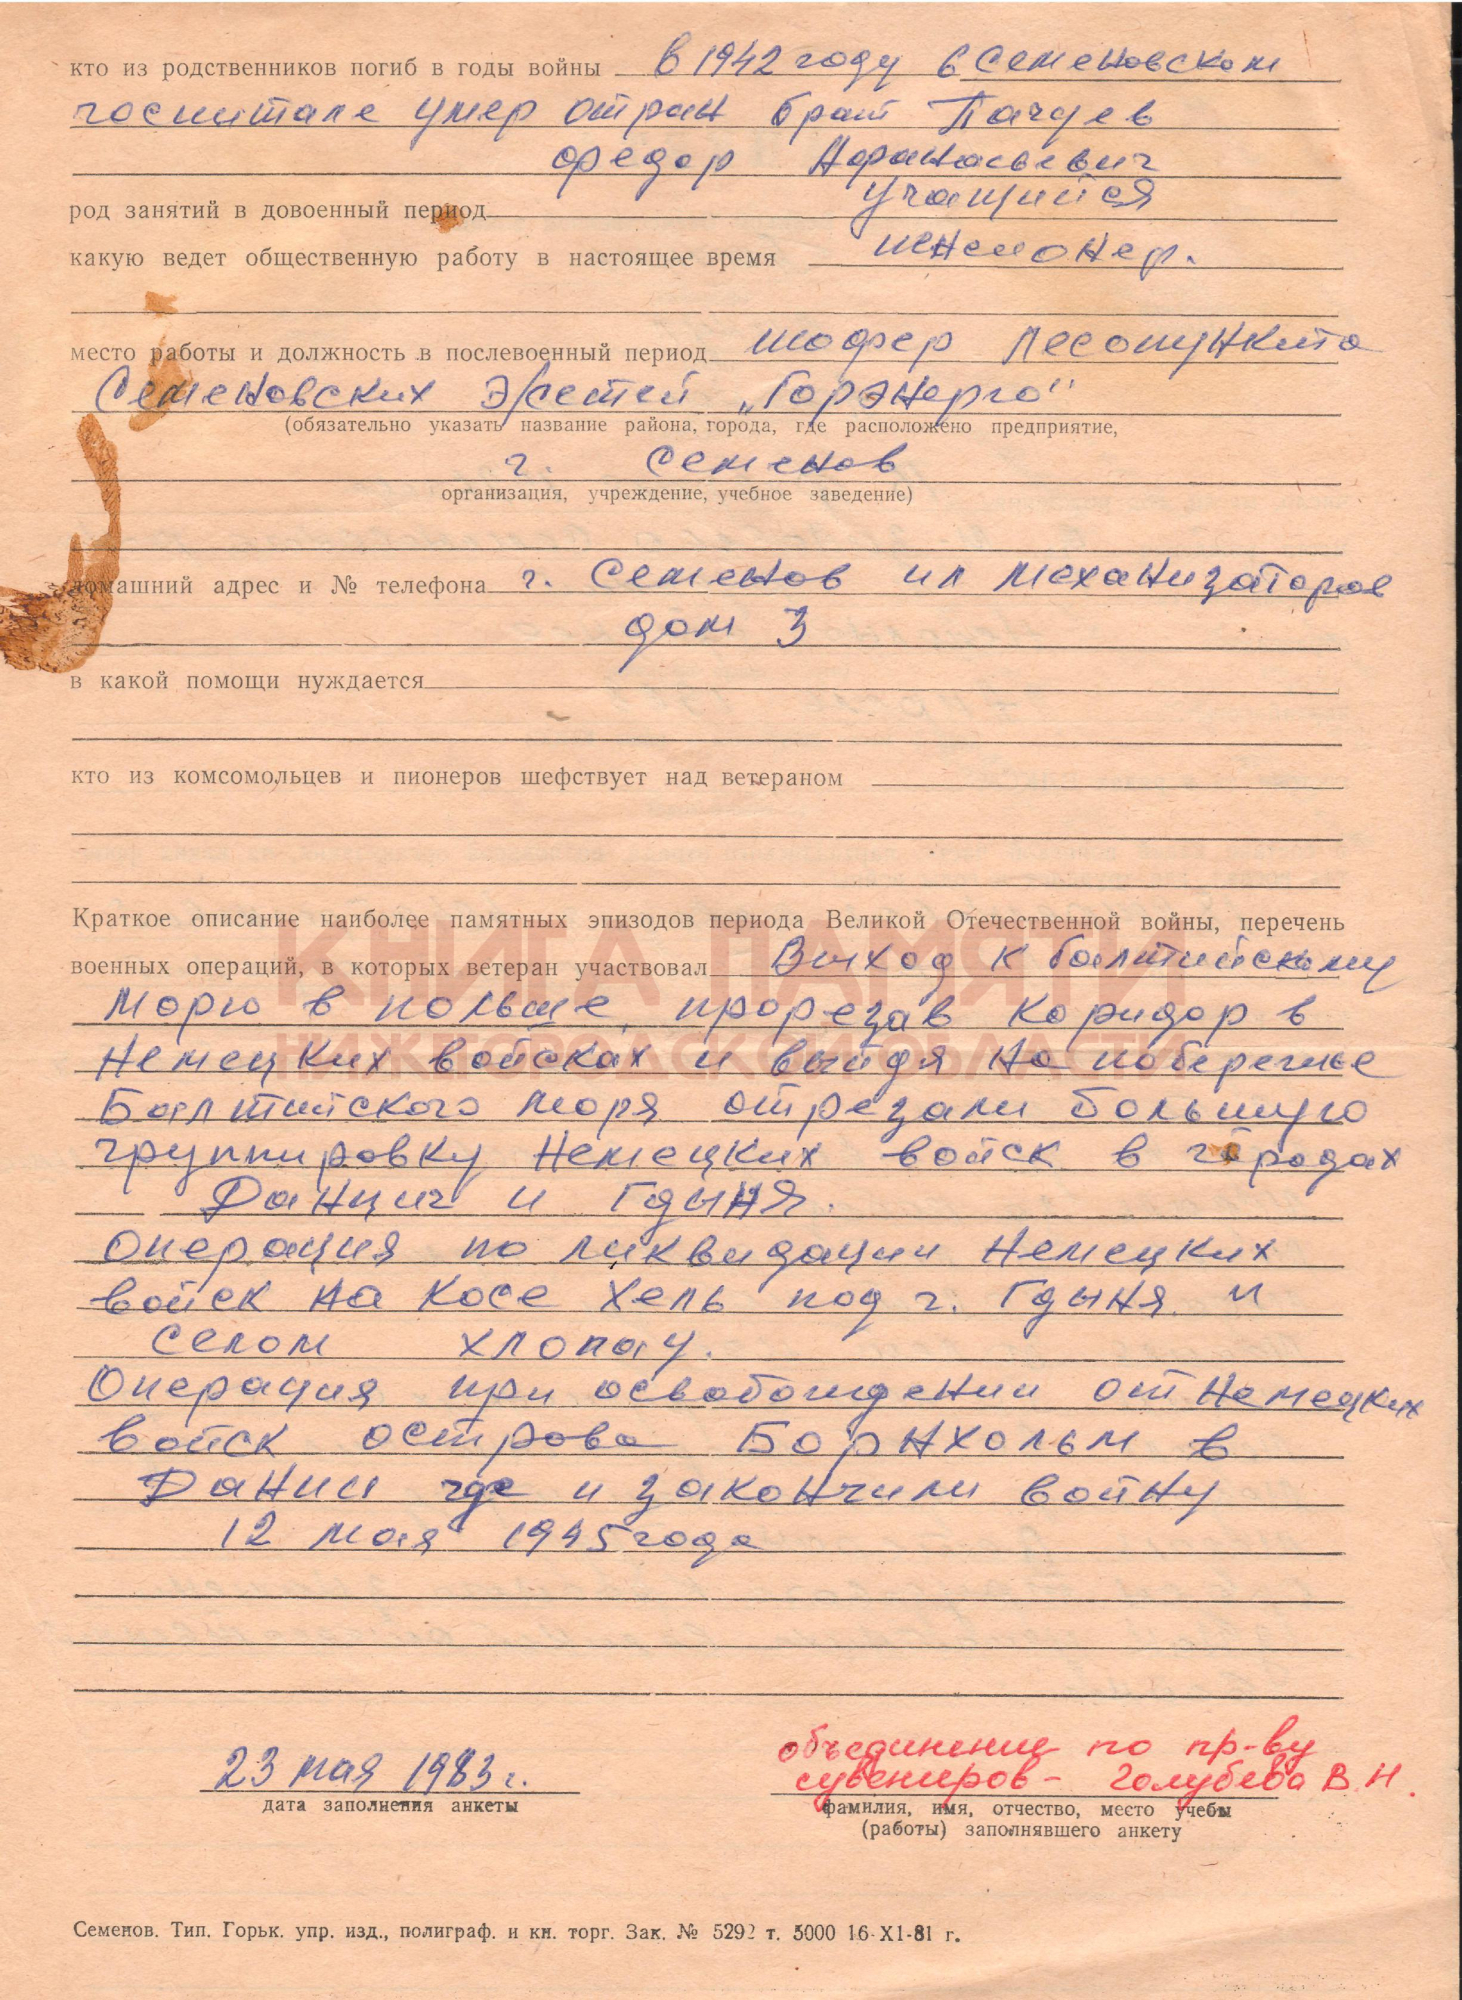 кто из родственников погиб в годы войны в 1942 году в Семеновском
госпитале умер от ран брат Пачуев
Федор Афанасьевич
род занятий в довоенный период учащийся
какую ведет общественную работу в настоящее время пенсионер.
место работы и должность в послевоенный период шофер лесопункта
Семеновских э/сетей „Горэнерго"
(обязательно указать название района, города, где расположено предприятие,
г. Семенов
организация, учреждение, учебное заведение)
домашний адрес и № телефона г. Семенов ул Механизаторов
дом 3
в какой помощи нуждается
кто из комсомольцев и пионеров шефствует над ветераном
Краткое описание наиболее памятных эпизодов периода Великой Отечественной войны, перечень
КНИГА ПАМЯТИ
военных операций, в которых ветеран участвовал Выход к балтийскому
морю в польше, прорезав коридор в
немецких войсках и выйдя на побережье
НИЖЕГОРОДСКОЙ ОБЛАСТИ
Балтийского моря отрезали большую
группировку немецких войск в городах
Данциг и Гдыня.
операция по ликвидации немецких
войск на косе Хель под г. Гдыня и
селом хлопау.
Операция при освобождении от немецких
войск острова Борнхольм в
Дании где и закончили войну
12 мая 1945 года
23 мая 1983 г.
дата заполнения анкеты
объединение по пр-ву
сувениров - Голубева В.Н.
фамилия, имя, отчество, место учебы
(работы) заполнявшего анкету
Семенов. Тип. Горьк. упр. изд., полиграф. и кн. торг. Зак. № 5292 т. 5000 16-XI-81 г.